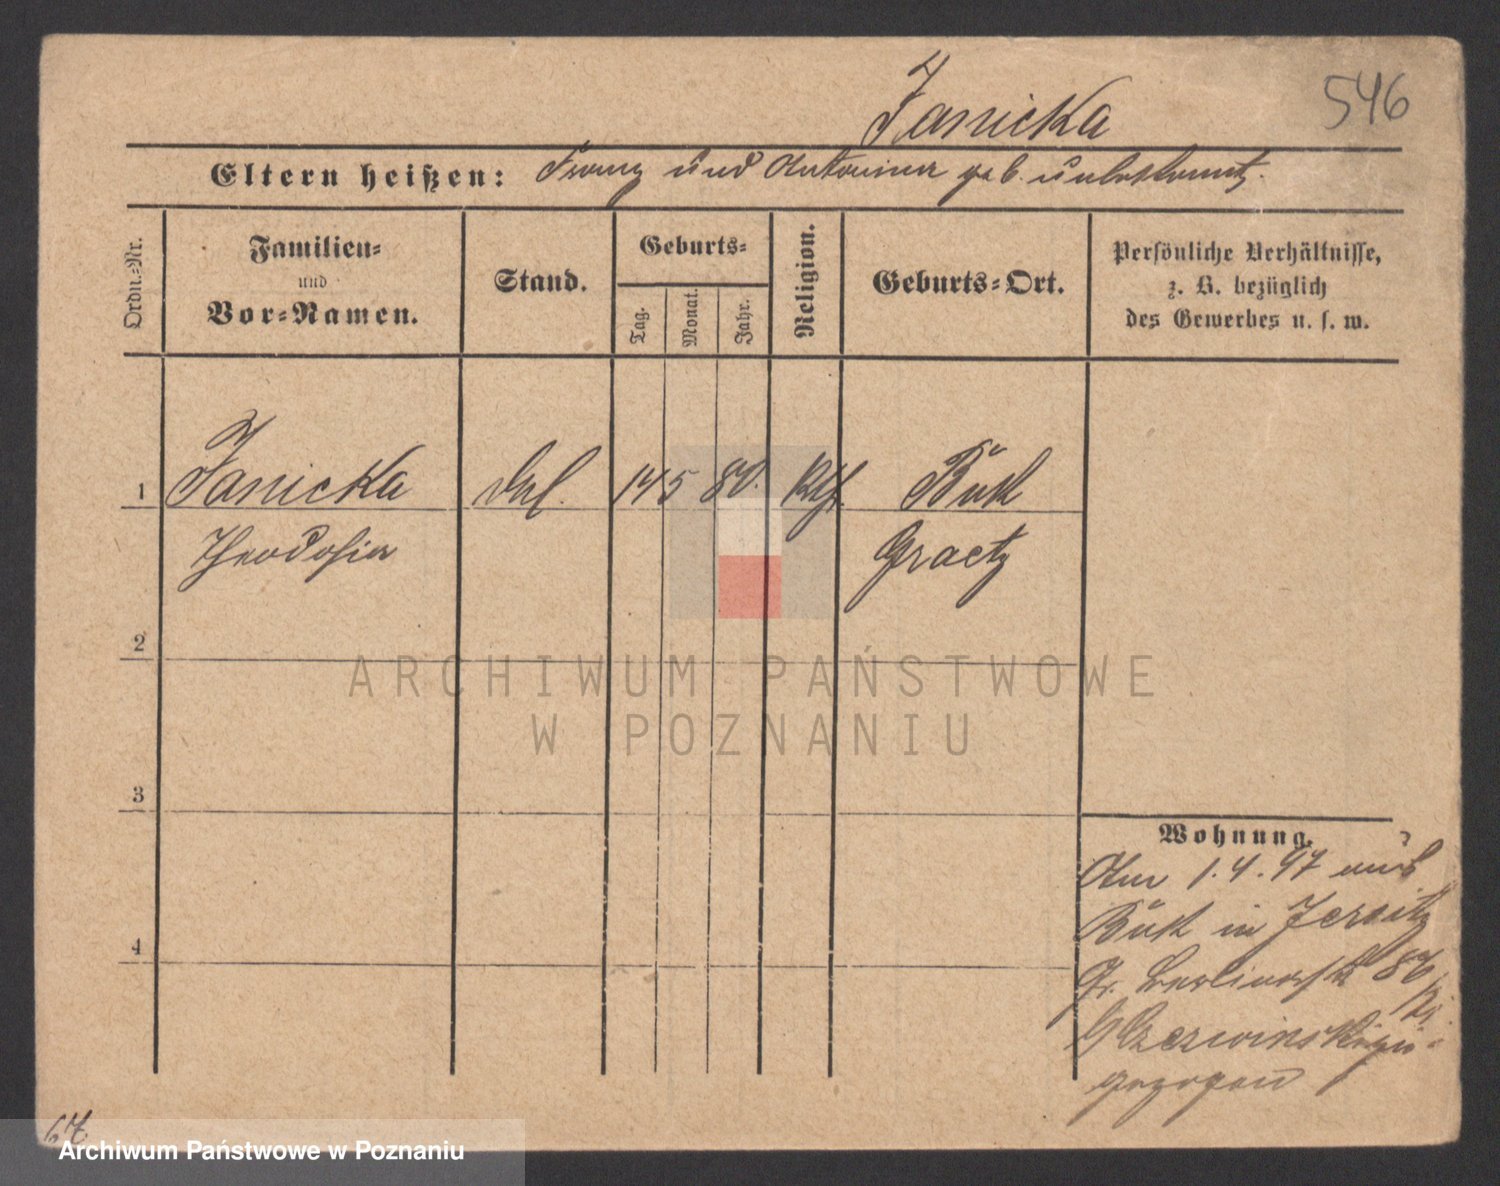 546
Janicka
Eltern heißen: Franz und Antonina geb. unbekannt.
Ordn.-Nr.
Familien-
und
Vor-Namen.
Stand.
Geburts-
Tag.
Monat.
Jahr.
Religion.
Geburts-Ort.
Persönliche Verhältnisse,
z. B. bezüglich
des Gewerbes u. s. w.
1 Janicka 14 5 80. Kth. Buk
Theodosia Graetz
2
3
4
Wohnung.
Am 1.4.97 aus
Buk in Jersitz
Gr. Berlinerstr 86
Czerwinski zu-
gezogen
ARCHIWUM PAŃSTWOWE
W POZNANIU
Archiwum Państwowe w Poznaniu